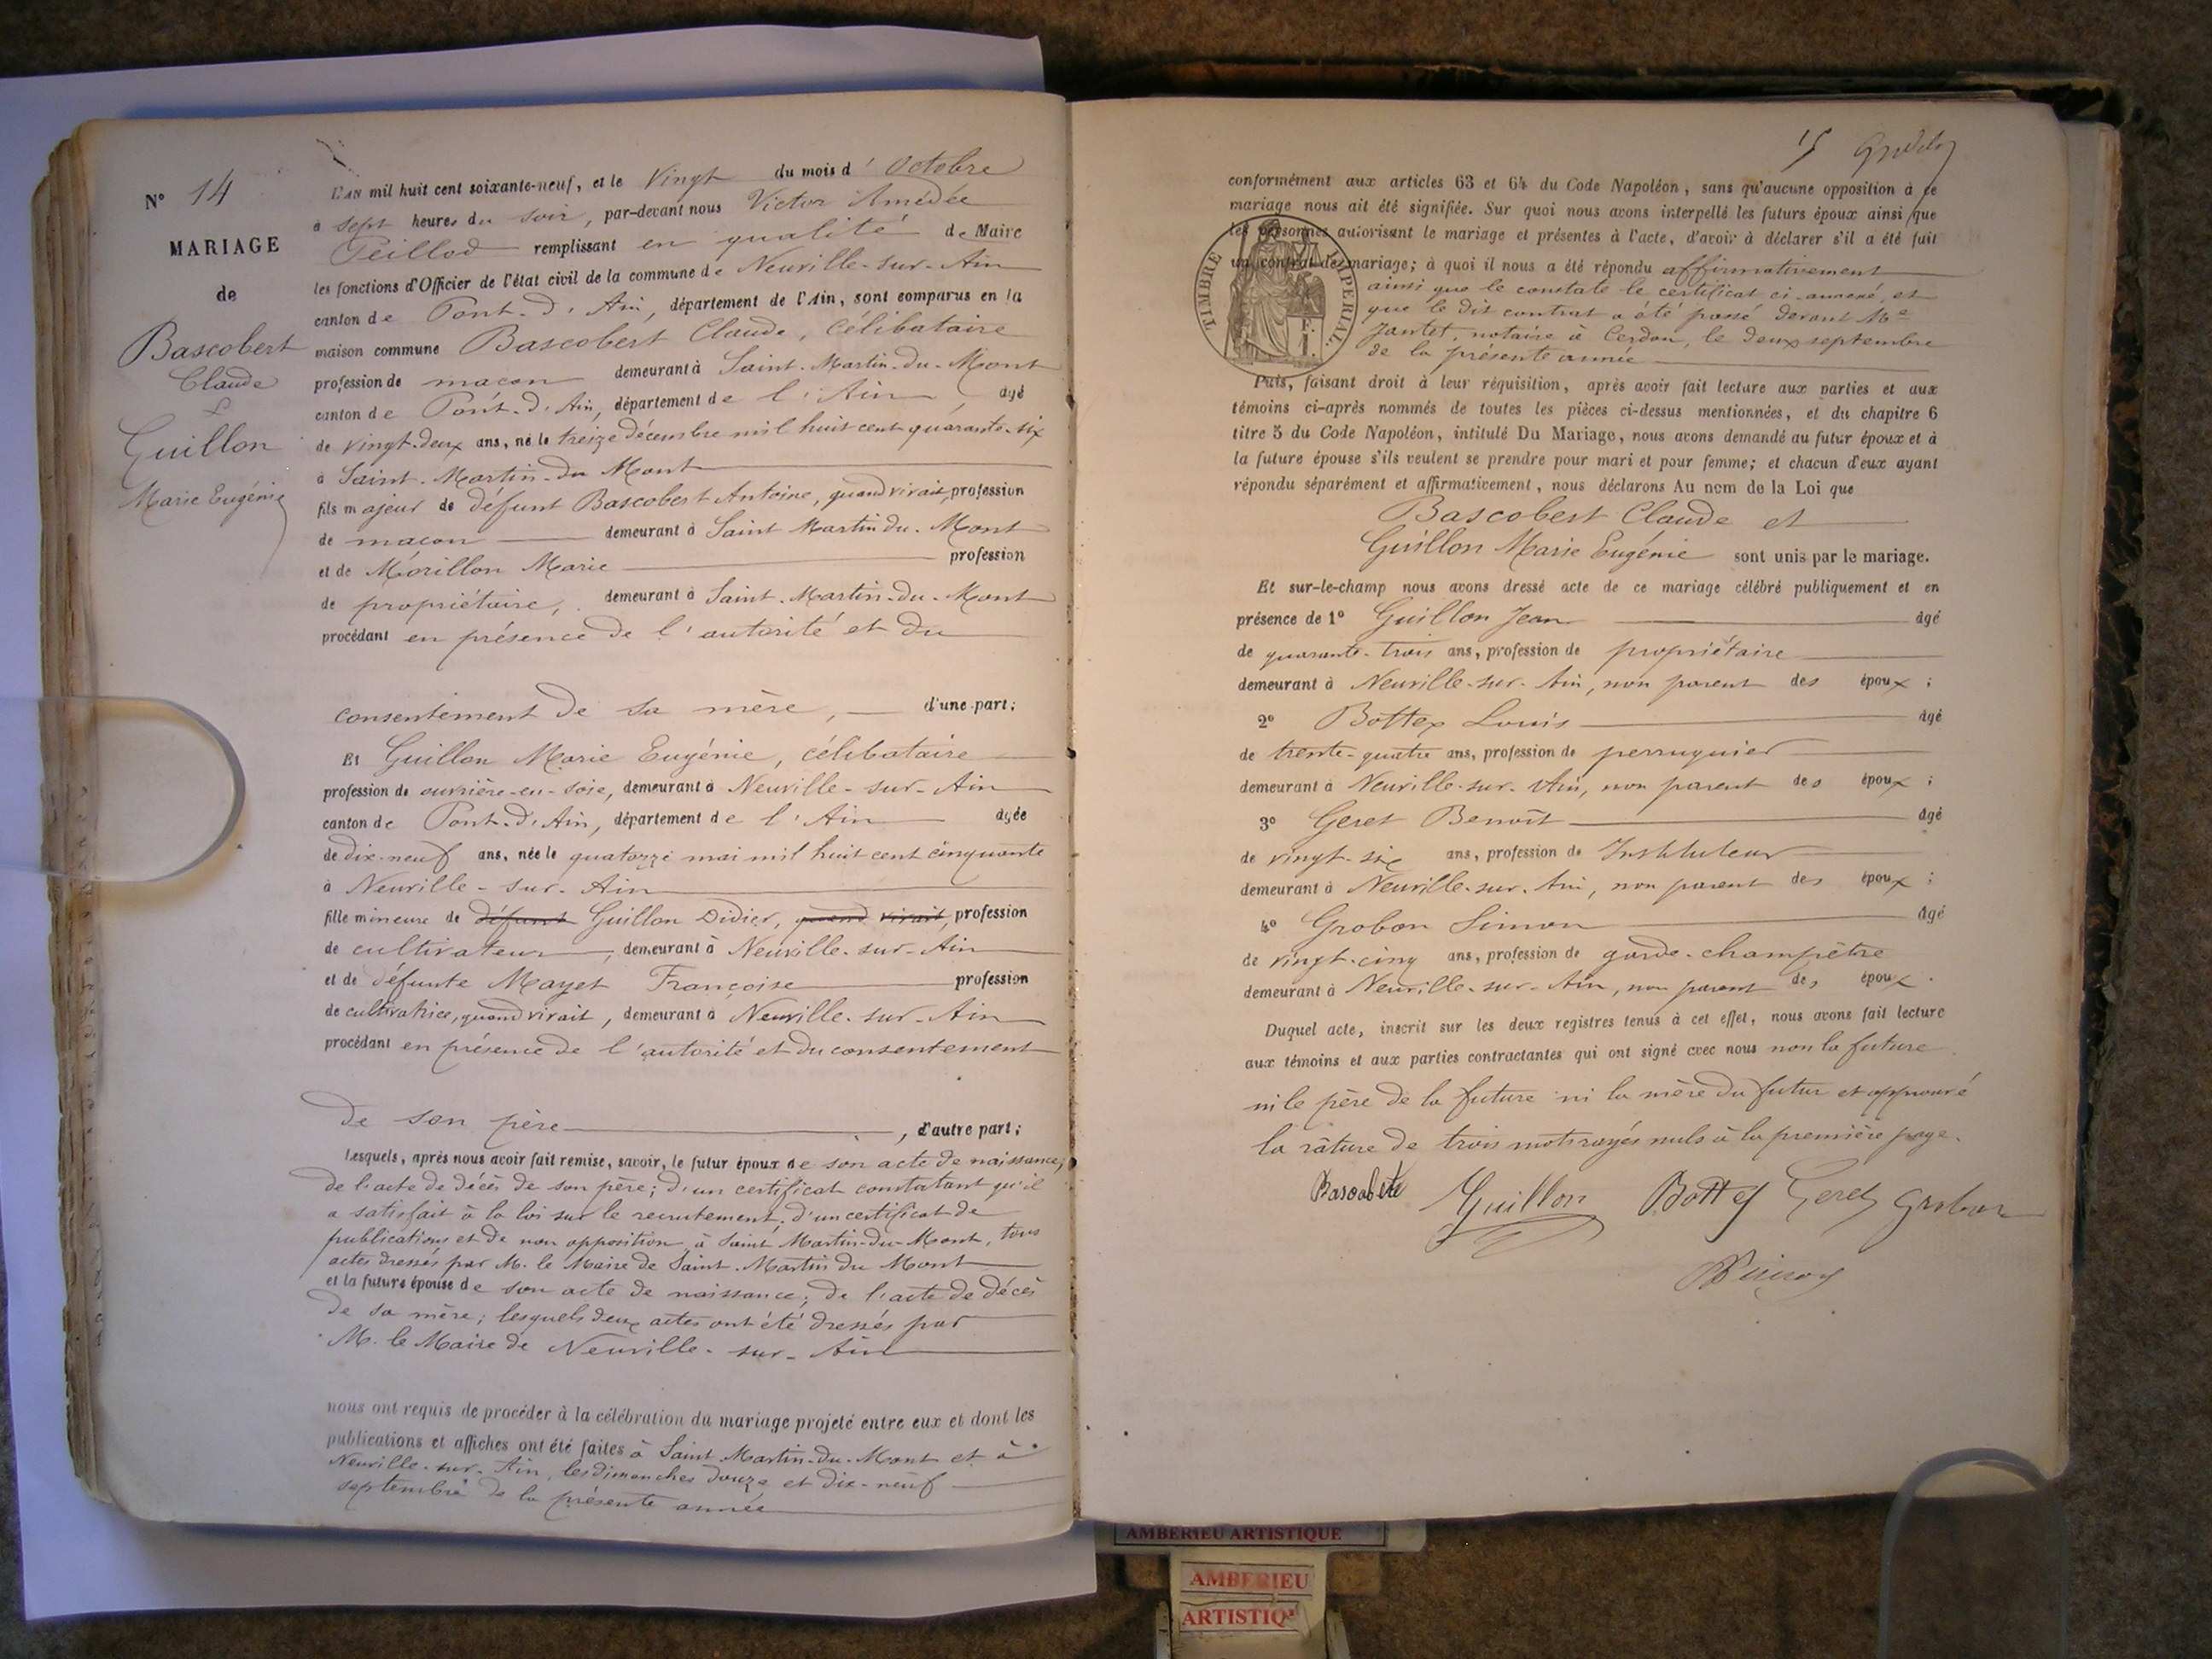 N° 14
MARIAGE
de
Bascobert
Claude
&
Guillon
Marie Eugénie
L'AN mil huit cent soixante-neuf, et le Vingt du mois d' Octobre
à sept heures du soir, par-devant nous Victor Amédée
Peillod remplissant en qualité de Maire
les fonctions d'Officier de l'état civil de la commune de Neuville-sur-Ain
canton de Pont-d'Ain, département de l'Ain, sont comparus en la
maison commune Bascobert Claude, Célibataire
profession de maçon demeurant à Saint-Martin-du-Mont
canton de Pont-d'Ain, département de l'Ain, âgé
de vingt-deux ans, né le treize décembre mil huit cent quarante-six
à Saint-Martin-du-Mont
fils majeur de défunt Bascobert Antoine, quand vivait, profession
de maçon demeurant à Saint Martin du-Mont
et de Morillon Marie profession
de propriétaire, demeurant à Saint-Martin-du-Mont
procédant en présence de l'autorité et du
consentement de sa mère, d'une part;
Et Guillon Marie Eugénie, célibataire
profession de ouvrière-en-soie, demeurant à Neuville-sur-Ain
canton de Pont-d'Ain, département de l'Ain âgée
de dix-neuf ans, née le quatorze mai mil huit cent cinquante
à Neuville-sur-Ain
fille mineure de défunt Guillon Didier, quand vivait, profession
de cultivateur, demeurant à Neuville-sur-Ain
et de défunte Mayet Françoise profession
de cultivatrice, quand vivait, demeurant à Neuville-sur-Ain
procédant en présence de l'autorité et du consentement
de son père, d'autre part;
lesquels, après nous avoir fait remise, savoir, le futur époux de son acte de naissance,
de l'acte de décès de son père; d'un certificat constatant qu'il
a satisfait à la loi sur le recrutement; d'un certificat de
publications et de non opposition à Saint Martin-du-Mont, tous
actes dressés par M. le Maire de Saint-Martin du Mont
et la future épouse de son acte de naissance; de l'acte de décès
de sa mère; lesquels deux actes ont été dressés par
M. le Maire de Neuville-sur-Ain
nous ont requis de procéder à la célébration du mariage projeté entre eux et dont les
publications et affiches ont été faites à Saint Martin-du-Mont et à
Neuville-sur-Ain, les dimanches douze et dix-neuf
septembre de la présente année
15
conformément aux articles 63 et 64 du Code Napoléon, sans qu'aucune opposition à ce
mariage nous ait été signifiée. Sur quoi nous avons interpellé les futurs époux ainsi que
les personnes autorisant le mariage et présentes à l'acte, d'avoir à déclarer s'il a été fait
un contrat de mariage; à quoi il nous a été répondu affirmativement
ainsi que le constate le certificat ci-annexé, et
que le dit contrat a été passé devant Me
Jantet, notaire à Cerdon, le deux septembre
de la présente année
TIMBRE IMPERIAL.
Puis, faisant droit à leur réquisition, après avoir fait lecture aux parties et aux
témoins ci-après nommés de toutes les pièces ci-dessus mentionnées, et du chapitre 6
titre 5 du Code Napoléon, intitulé Du Mariage, nous avons demandé au futur époux et à
la future épouse s'ils veulent se prendre pour mari et pour femme; et chacun d'eux ayant
répondu séparément et affirmativement, nous déclarons Au nom de la Loi que
Bascobert Claude et
Guillon Marie Eugénie sont unis par le mariage.
Et sur-le-champ nous avons dressé acte de ce mariage célébré publiquement et en
présence de 1° Guillon Jean âgé
de quarante-trois ans, profession de propriétaire
demeurant à Neuville-sur-Ain, non parent des époux;
2° Bottex Louis âgé
de trente-quatre ans, profession de perruquier
demeurant à Neuville-sur-Ain, non parent des époux;
3° Geret Benoît âgé
de vingt-six ans, profession de Instituteur
demeurant à Neuville-sur-Ain, non parent des époux;
4° Grobon Simon âgé
de vingt-cinq ans, profession de garde-champêtre
demeurant à Neuville-sur-Ain, non parent des époux.
Duquel acte, inscrit sur les deux registres tenus à cet effet, nous avons fait lecture
aux témoins et aux parties contractantes qui ont signé avec nous non la future
ni le père de la future ni la mère du futur et approuvé
la râture de trois mots rayés nuls à la première page.
Guillon Bottex Geret Grobon
AMBERIEU ARTISTIQUE
AMBERIEU
ARTISTIQ